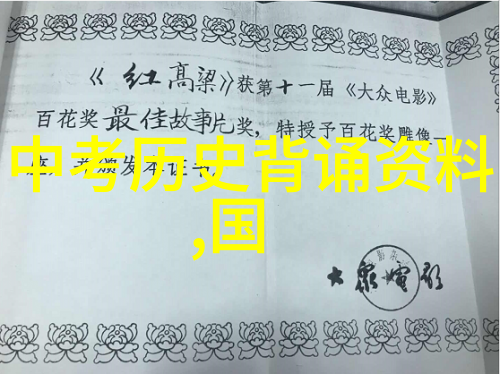 《红高梁》获第十一届《大众电影》
百花奖最佳故事片奖，特授予百花奖雕像一
座，并颁发本证书
中考历史背诵资料
,国
大众电影